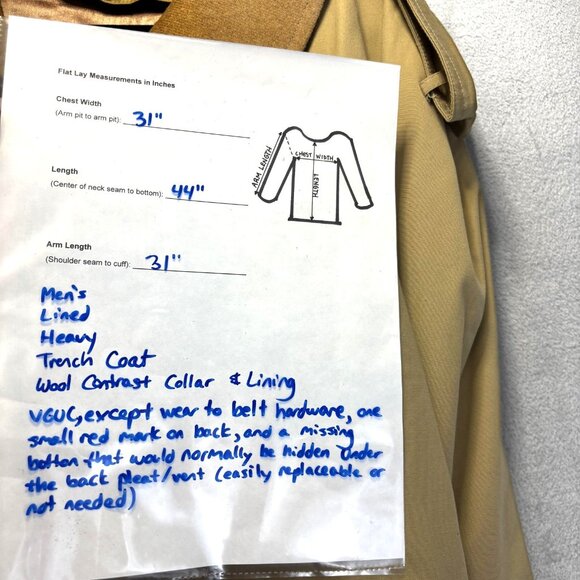 Flat Lay Measurements in Inches
Chest Width
(Arm pit to arm pit): 31"
Length
(Center of neck seam to bottom): 44"
Arm Length
(Shoulder seam to cuff): 31"
ARM LENGTH
CHEST WIDTH
LENGTH
Men's
Lined
Heavy
Trench Coat
Wool Contrast Collar & Lining
VGUC, except wear to belt hardware, one
small red mark on back, and a missing
button that would normally be hidden under
the back pleat/vent (easily replaceable or
not needed)